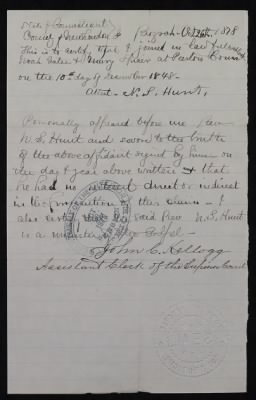 State of Connecticut }
County of } Bozrah Oct 1878
This is to certify, that I joined in lawful
Noah and Mary at Easton Conn
on the 10th day of December 1848.
Attest - N. S. Hunt,
Personally appeared before me Rev
N. S. Hunt and swore to the truth
of the above affidavit signed by him on
the day & year above written & that
he had no interest direct or indirect
in the prosecution of this claim - I
also certify that said Rev N. S. Hunt
is a minister Gospel -
John C. Kellogg
Assistant Clerk of the Superior Court